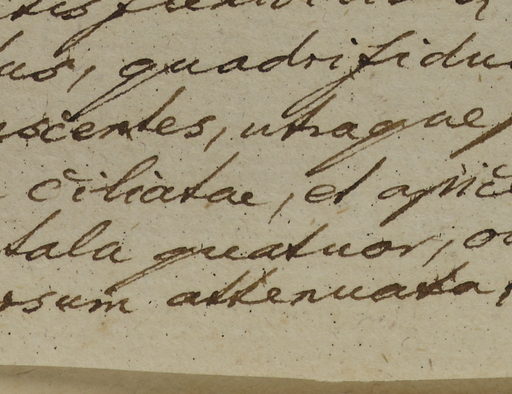 lus, quadrifidu
scentes, utraque
ciliatae, et apice
tala quatuor, o
rsum attenuata,